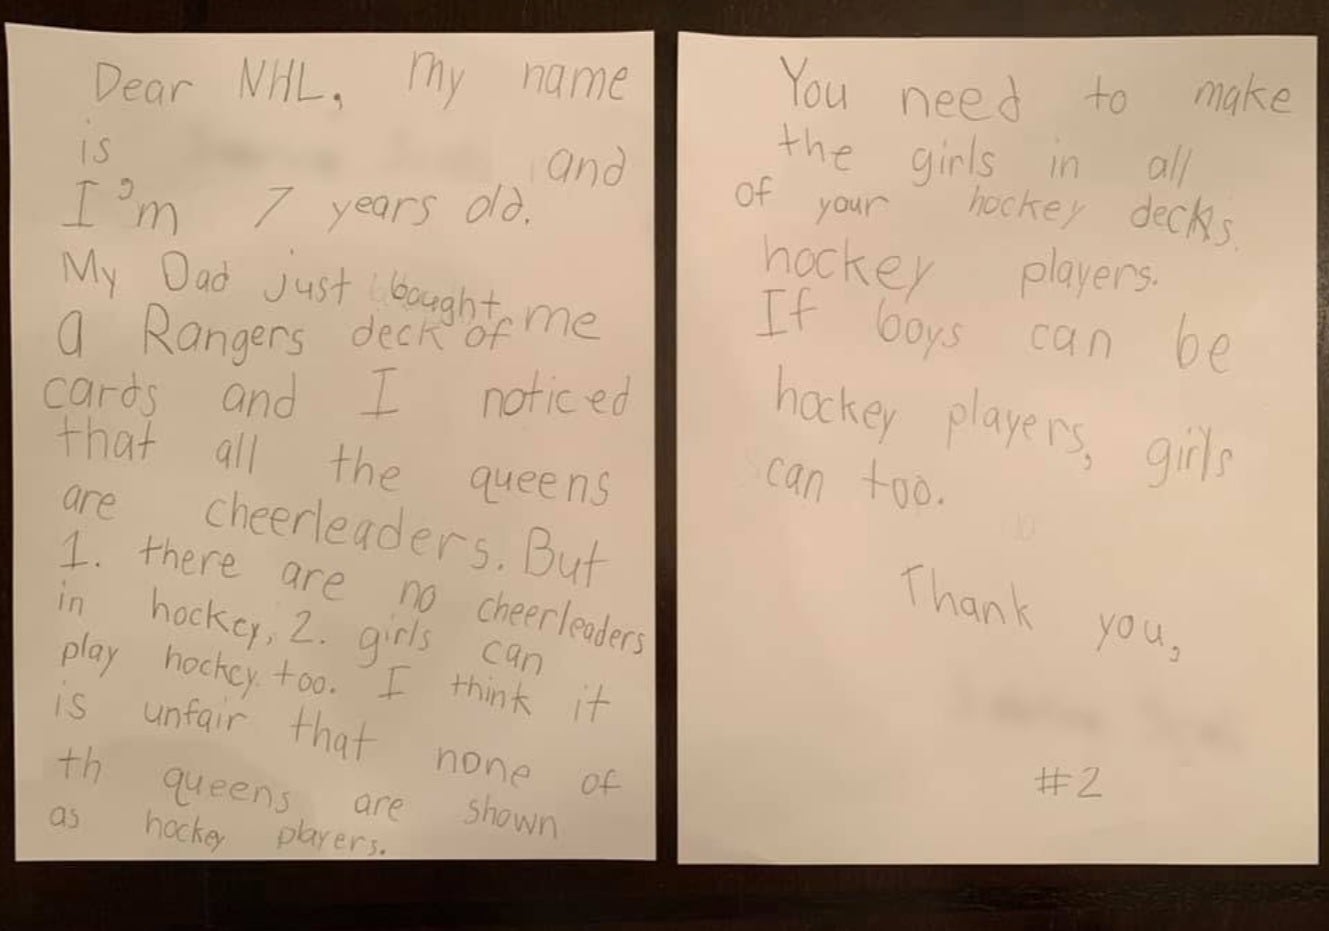 Dear NHL, My name
is and
I'm 7 years old.
My Dad just bought me
a Rangers deck of
cards and I noticed
that all the queens
are cheerleaders. But
1. there are no cheerleaders
in hockey, 2. girls can
play hockey too. I think it
is unfair that none of
th queens are shown
as hockey players.
You need to make
the girls in all
of your hockey decks.
hockey players.
If boys can be
hockey players, girls
can too.
Thank you,
#2